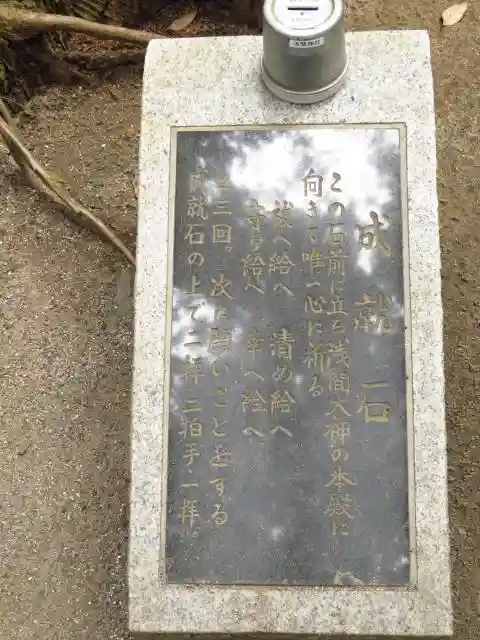 成就石
この石前に立ち浅間大神の本殿に
向きて唯一心に祈る
祓へ給へ 清め給へ
守り給へ 幸へ給へ
と三回。次に願いごとをする
成就石の上で二拝二拍手一拝。